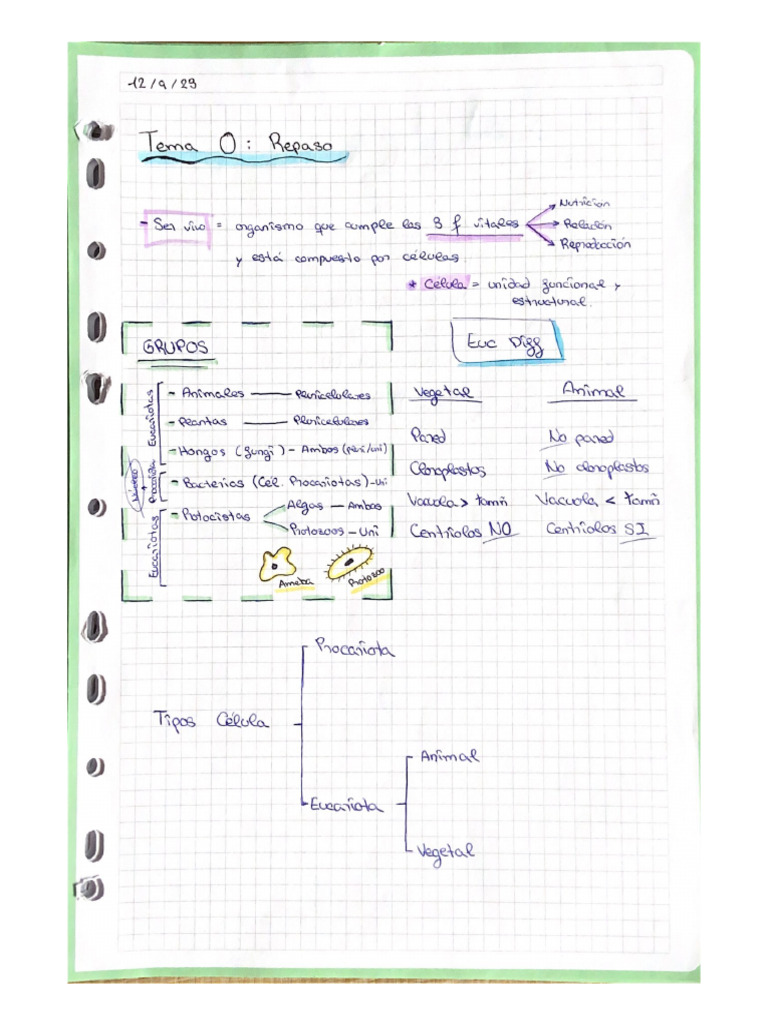 12/9/23
Tema 0: Repaso
- Ser vivo = organismo que cumple las 3 f vitales
Nutrición
Relación
Reproducción
y está compuesto por células.
* Célula = unidad funcional y
estructural.
GRUPOS
Eucariotas
- Animales — Pluricelulares
- Plantas — Pluricelulares
- Hongos (fungi) - Ambos (pluri/uni)
Núcleo
Procariota
- Bacterias (Cel. Procariotas) - Uni
Eucariotas
- Protocistas
Algas — Ambos
Protozoos - Uni
Ameba
Protozoo
Euc Diff
Vegetal
Animal
Pared
No pared
Cloroplastos
No cloroplastos
Vacuola > tamñ
Vacuola < tamñ
Centriolos NO
Centriolos SI
Tipos Célula
Procariota
Eucariota
Animal
Vegetal